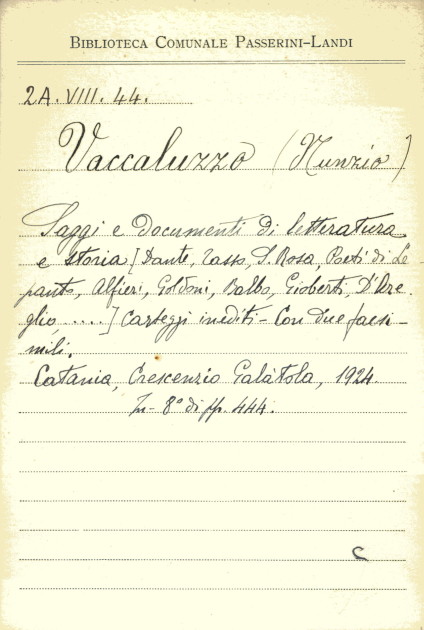 BIBLIOTECA COMUNALE PASSERINI-LANDI
2A. VIII. 44.
Vaccaluzzo (Nunzio)
Saggi e documenti di letteratura
e storia [Dante, Tasso, S. Rosa, Poeti di Le-
panto, Alfieri, Goldoni, Balbo, Gioberti, D'Aze-
glio, .....] Carteggi inediti - Con due facsi-
mili.
Catania, Crescenzio Galàtola, 1924.
In- 8° di pp. 444.
C